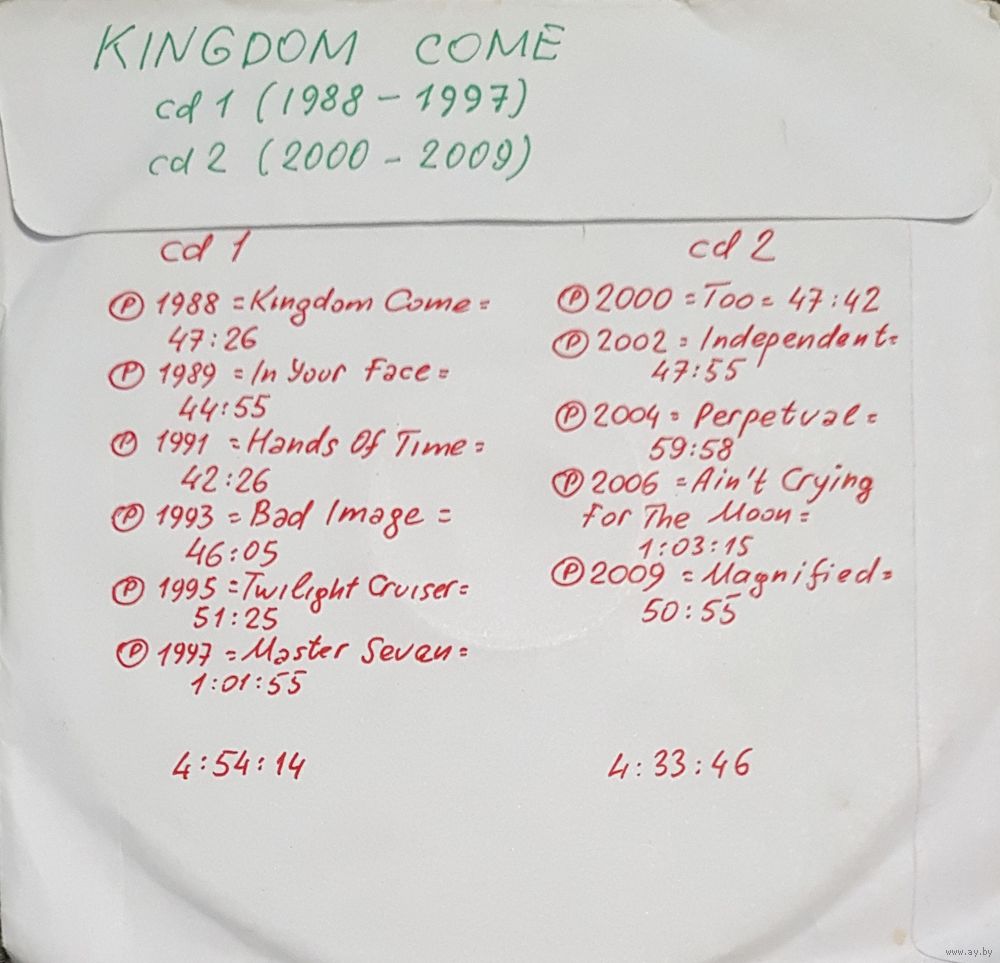 KINGDOM COME
cd 1 (1988 - 1997)
cd 2 (2000 - 2009)
cd 1
Ⓟ 1988 = Kingdom Come =
47:26
Ⓟ 1989 = In Your Face =
44:55
Ⓟ 1991 = Hands Of Time =
42:26
Ⓟ 1993 = Bad Image =
46:05
Ⓟ 1995 = Twilight Cruiser =
51:25
Ⓟ 1997 = Master Seven =
1:01:55
4:54:14
cd 2
Ⓟ 2000 = Too = 47:42
Ⓟ 2002 = Independent =
47:55
Ⓟ 2004 = Perpetual =
59:58
Ⓟ 2006 = Ain't Crying
For The Moon =
1:03:15
Ⓟ 2009 = Magnified =
50:55
4:33:46
www.ay.by